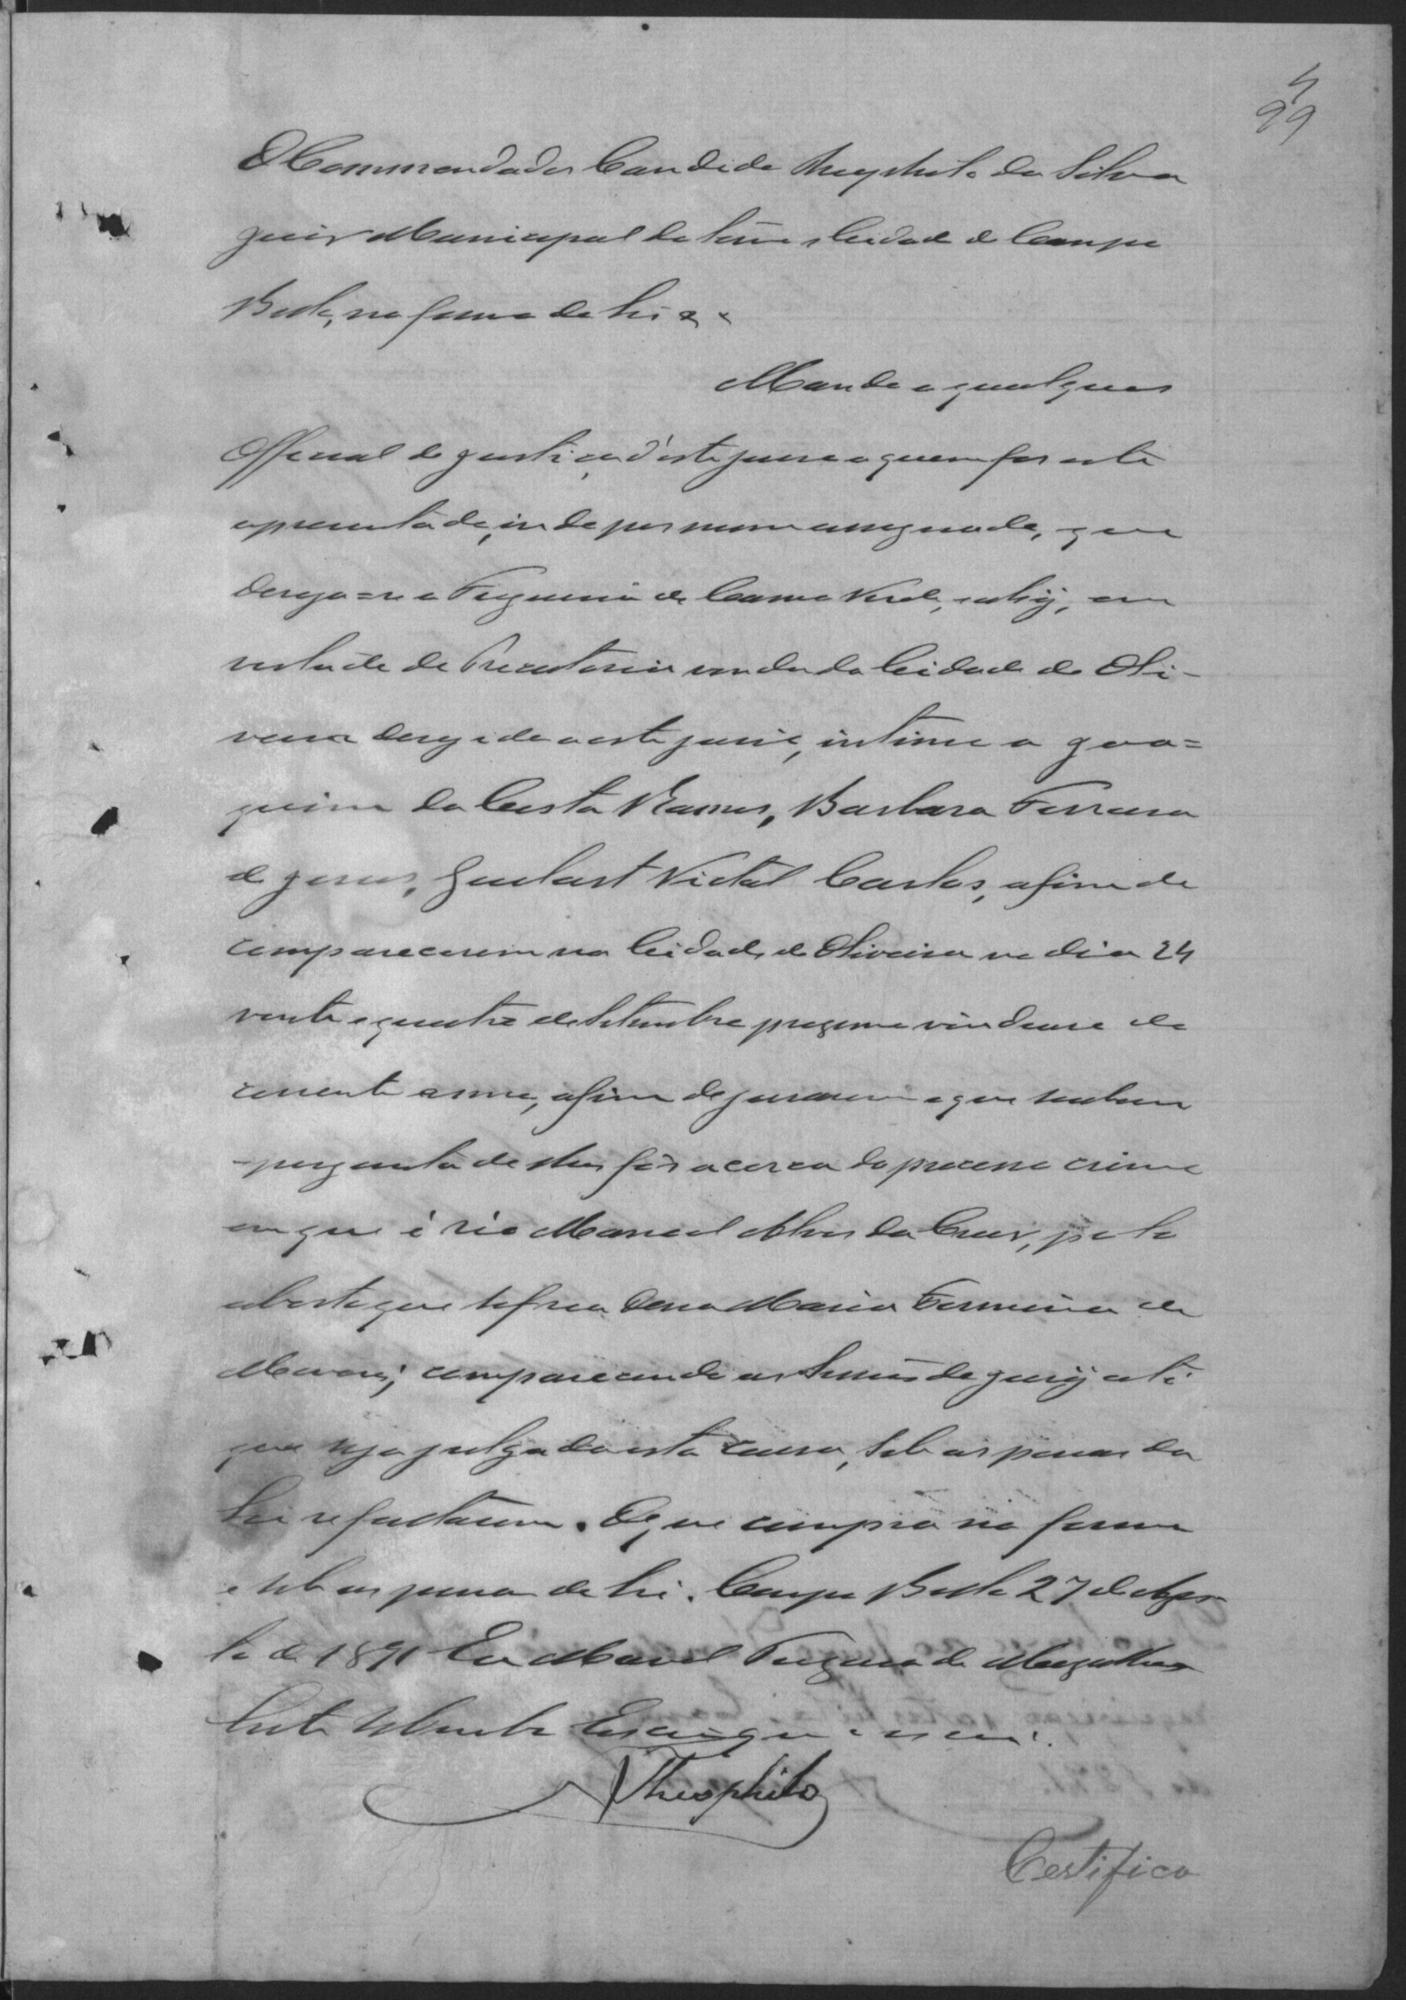 4
99
O Commendador Candido Theophilo da Silva
Juiz Municipal do Termo e Cidade de Campo
Bello, na forma da lei &
Mando a qualquer
Official de Justiça d'este juizo a quem for este
apresentado, indo por mim assignado, que
dirija=se a Freguezia de Canna Verde, e ahy, em
vertude de Precatoria vinda da Cidade de Oli-
veira dirigida a este juizo, intime a Joa=
quim da Costa Ramos, Barbara Ferreira
de Jesus, Goulart Victal Carlos, afim de
comparecerem na Cidade de Oliveira no dia 24
vinte e quatro de Setembro proximo vindouro do
corrente anno, afim de jurarem o que souberem
e perguntado lhes for acerca do processo crime
em que é réo Manoel Alves da Cruz, pelo
aborto que sofreu Dona Maria Firmina de
Moraes; comparecendo as Sessões de jury até
que seja julgada esta causa, sob as penas da
Lei se faltarem. O que cumpra na forma
e sob as penas da lei. Campo Bello 27 de Agos-
to de 1891 Eu Manoel de Magalhães
Escrivão que escrevi.
Theophilo
Certifico